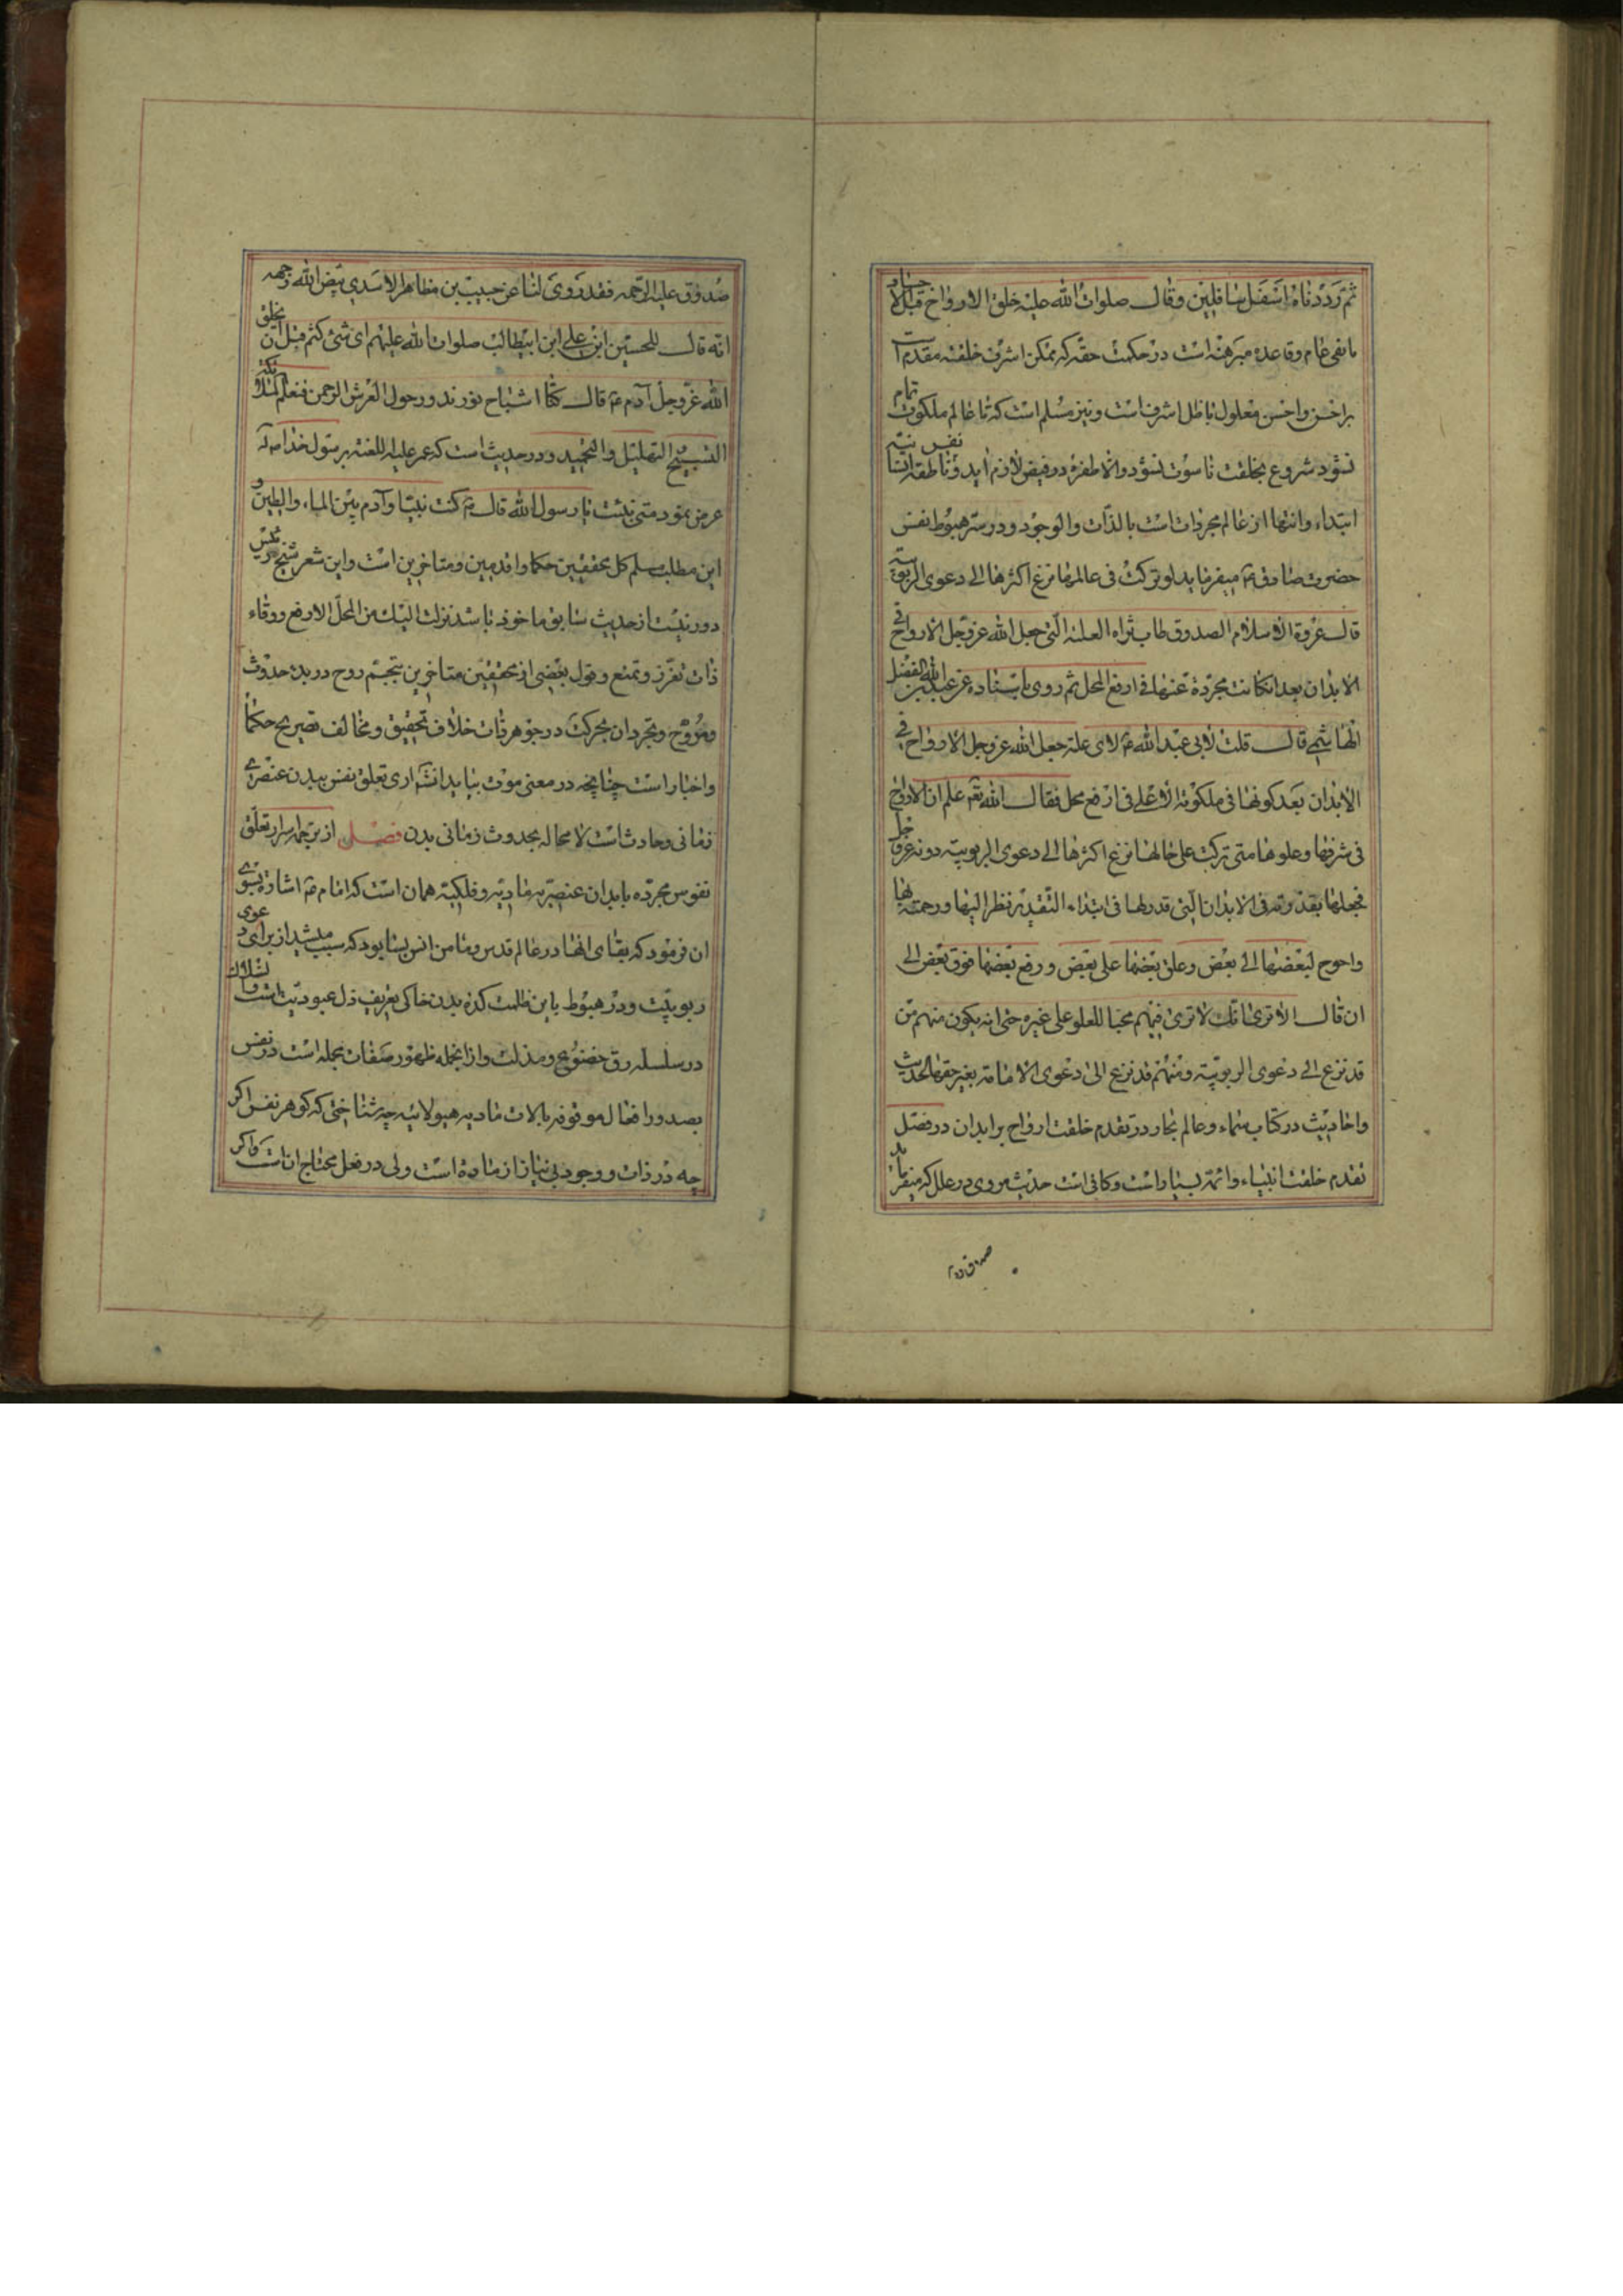 ثم رددناه اسفل سافلین وقال صلوات الله علیه خلق الارواح قبل الاجساد
بالفی عام وقاعده مبرهنه است در حکمت حقه که ممکن اشرف خلقته مقدم است
بر اخس واخس معلول با ظل اشرف است ونیز مسلم است که تا عالم ملکوت تمام
نشود شروع بخلقت ناسوت نشود والا طفره در فیض لازم اید و نفس ناطقه
ابتداء وانتها از عالم مجردات است بالذات والوجود ودر سر هبوط نفس
حضرت صادق ع میفرماید لو ترکت فی عالمها نزع اکثرها الی دعوی الربوبیة
قال عروة الاسلام الصدوق طاب ثراه العلة التی جعل الله عز وجل الارواح فی
الابدان بعد انکانت مجردة عنها فی ارفع المحل ثم روی باسناده عن عبدالله بن الفضل
الهاشمی قال قلت لابی عبدالله ع لای علة جعل الله عز وجل الارواح فی
الابدان بعد کونها فی ملکوته الاعلی فی ارفع محل فقال الله تع علم ان الارواح
فی شرفها وعلوها متی ترکت علی حالها نزع اکثرها الی دعوی الربوبیة دونه عز وجل
فجعلها بقدرته فی الابدان التی قدر لها فی ابتداء التقدیر نظرا الیها ورحمة بها
واحوج لبعضها الی بعض وعلق بعضها علی بعض ورفع بعضها فوق بعض الی
ان قال الا تری انک لا تری فیهم محبا للعلو علی غیره حتی انه یکون منهم من
قد نزع الی دعوی الربوبیة ومنهم قد نزع الی دعوی الامامة بغیر حقها الحدیث
واحادیث در کتاب سماء وعالم بحار در تقدم خلقت ارواح بر ابدان در فصل
تقدم خلقت انبیاء وائمه بسیار است وکافی است حدیث مروی در علل که میفرماید
صدوق
صدوق علیه الرحمه فقد روی لنا عن حبیب بن مظاهر الاسدی بیض الله وجهه
انه قال للحسین ابن علی ابن ابیطالب صلوات الله علیهم ای شئ کنتم قبل ان یخلق
الله عز وجل آدم ع قال کنا اشباح نور ندور حول العرش الرحمن فنعلم للملائکة
التسبیح التهلیل والتحمید ودر حدیث است که عمر علیه اللعنه برسول خدا ص
عرض نمود متی نبئت یا رسول الله قال ص کنت نبیا وآدم بین الماء والطین و
این مطلب مسلم کل محققین حکما واقدمین ومتاخرین است واین شعر شیخ رئیس
دور نیست از حدیث سابق ماخوذ باشد نزلت الیک من المحل الارفع ورقاء
ذات تعزز وتمنع وقول بعضی از محققین متاخرین بتجسم روح در بدء حدوث
وتروح وتجرد ان بحرکت در جوهر ذات خلاف تحقیق ومخالف تصریح حکما
واخبار است چنانچه در معنی موت بیاید انشه اری تعلق نفس ببدن عنصری
زمانی وحادث است لا محاله بحدوث زمانی بدن فصل از جمله اسرار تعلق
نفوس مجرده بابدان عنصریه مادیه وفلکیه همان است که امام ع اشاره بسوی
ان فرمود که بقای انها در عالم قدس ومامن انس بسا بود که سبب میشد از برای دعوی
ربوبیت ودر هبوط باین ظلمت کده بدن خاکی تعریف ذل عبودیت است وانسلاک
در سلسله رق خضوع ومذلت وازانجمله ظهور صفات بجمله است در نفس
بصدور افعال موقوفه بالات مادیه هیولانیه چه شناختی که گوهر نفس اگر
چه در ذات ووجود بی نیاز از ماده است ولی در فعل محتاج ان است واگر